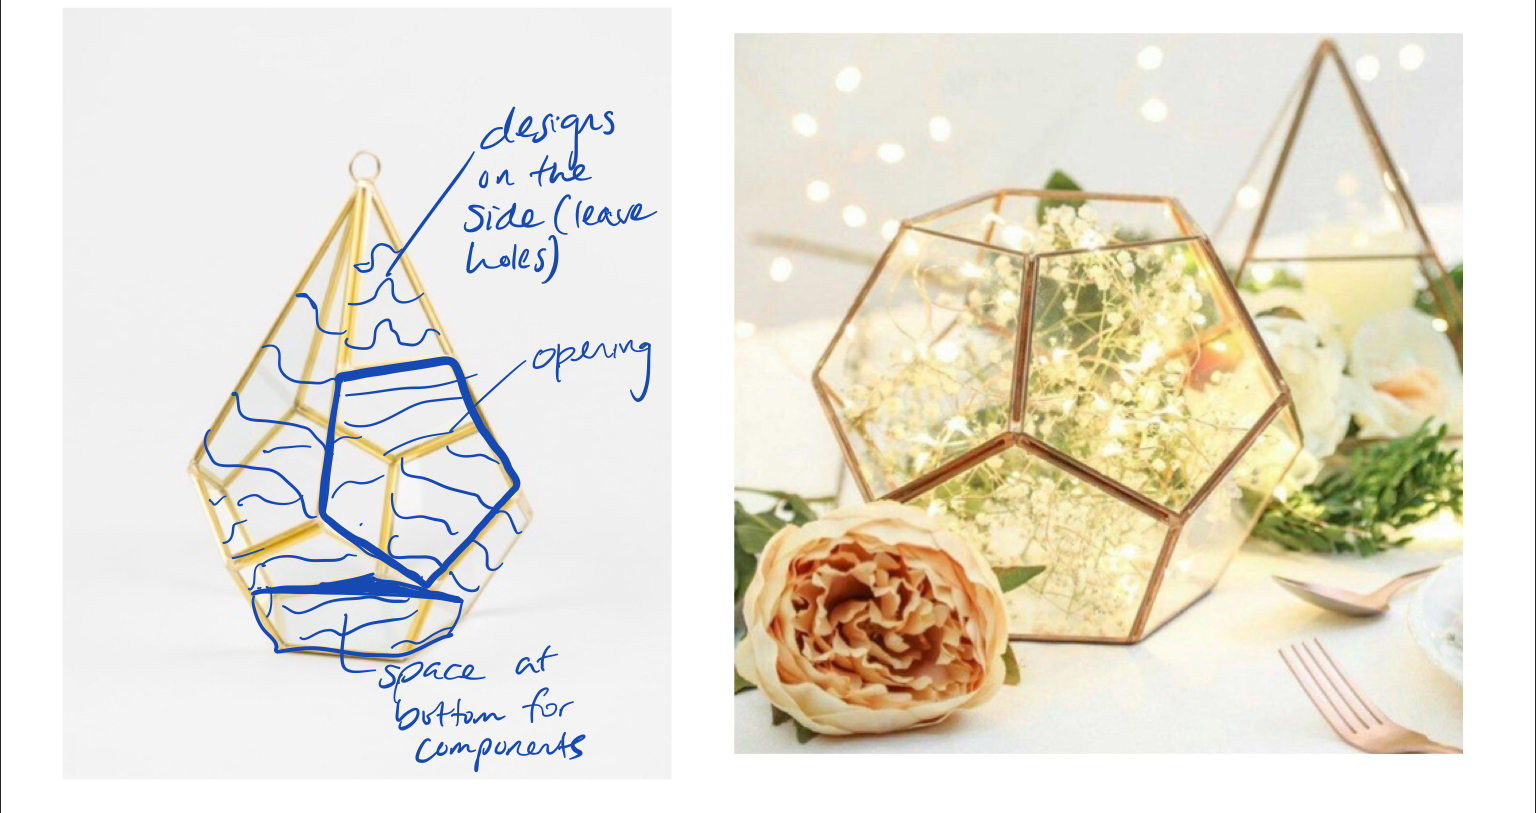 designs
on the
side (leave
holes)
opening
space at
bottom for
components